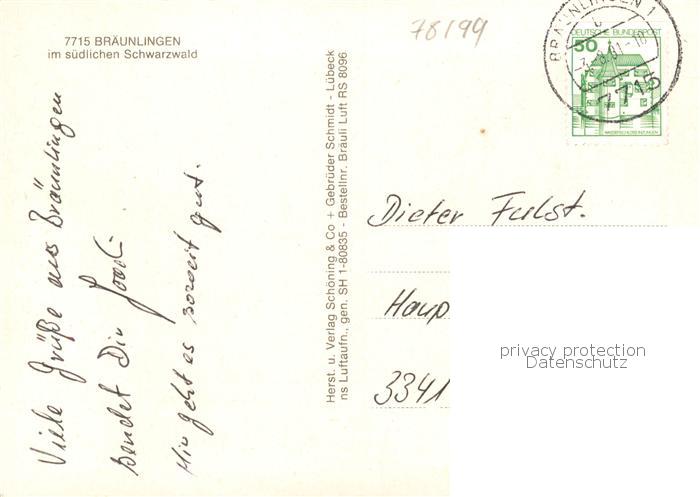 7715 BRÄUNLINGEN
im südlichen Schwarzwald
78/99
Viele Grüße aus Bräunlingen
sendet Dir
Mir geht es soweit gut.
Herst. u. Verlag Schöning & Co + Gebrüder Schmidt - Lübeck
ns Luftaufn., gen. SH 1-80835 - Bestellnr. Bräuli Luft RS 8096
BRÄUNLINGEN 1
7715
DEUTSCHE BUNDESPOST
50
WASSERSCHLOSS INZLINGEN
Dieter Fulst.
Haup
3341
privacy protection
Datenschutz